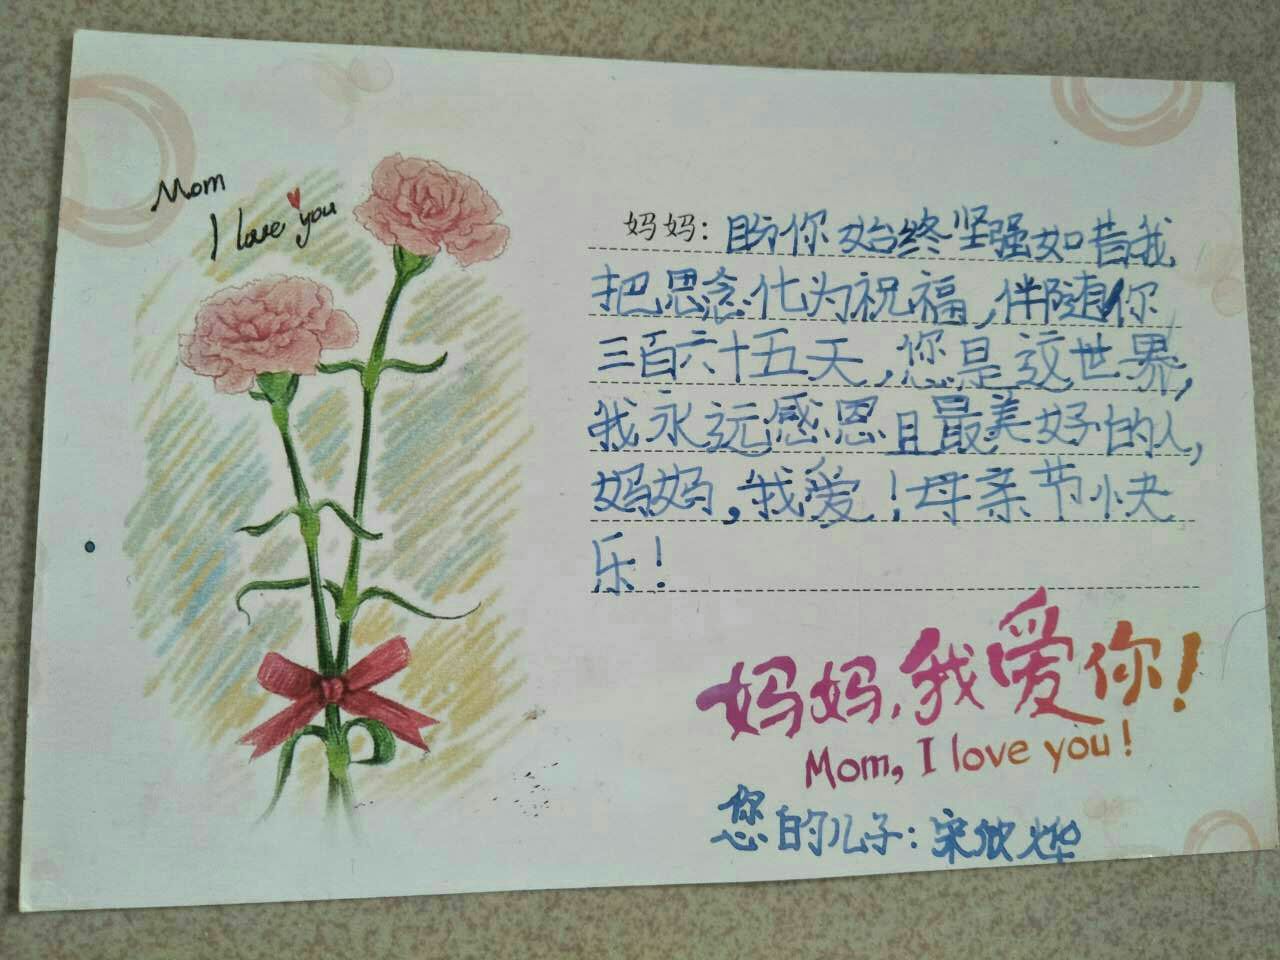 Mom
I love you
妈妈:盼你始终坚强如昔我
把思念化为祝福,伴随你
三百六十五天,您是这世界,
我永远感恩且最美好的人,
妈妈,我爱!母亲节快
乐!
妈妈,我爱你!
Mom, I love you!
您的儿子:宋欣烨